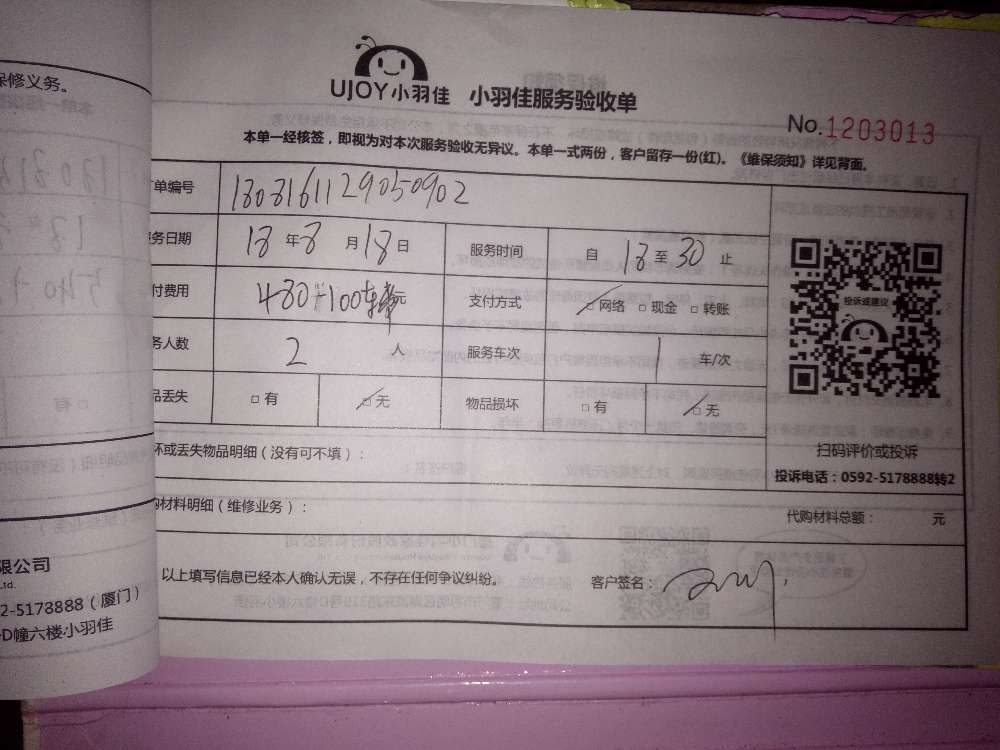 保修义务。
UJOY小羽佳 小羽佳服务验收单
No.1203013
本单一经核签，即视为对本次服务验收无异议。本单一式两份，客户留存一份(红)。《维保须知》详见背面。
单编号 180816112905090２
务日期 18年8月18日 服务时间 自18至30止
付费用 480 100车费 支付方式 ☑网络 □现金 □转账
务人数 2人 服务车次 1车/次
品丢失 □有 ☑无 物品损坏 □有 ☑无
投诉或建议
扫码评价或投诉
投诉电话：0592-5178888转2
坏或丢失物品明细（没有可不填）：
购材料明细（维修业务）：
代购材料总额： 元
以上填写信息已经本人确认无误，不存在任何争议纠纷。 客户签名：
限公司
Ltd.
2-5178888（厦门）
D幢六楼小羽佳